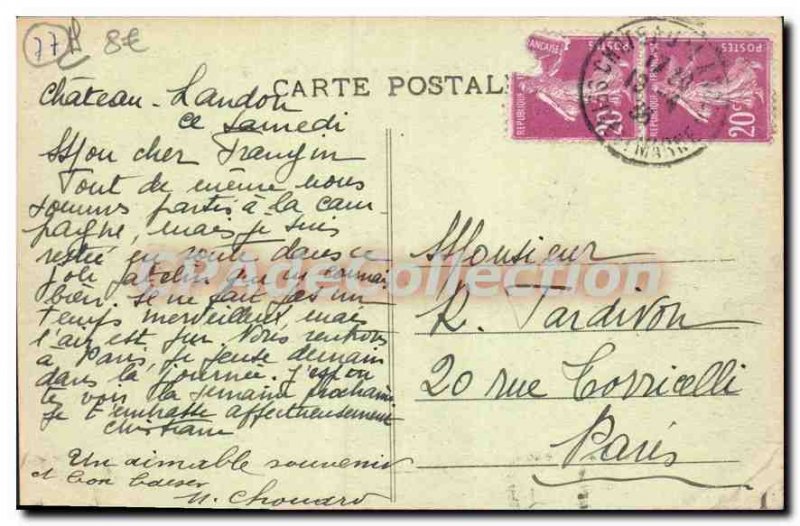 77 8€
CARTE POSTALE
Château-Landon
ce Samedi
Mon cher Frangin
Tout de même nous
sommes partis à la cam
pagne, mais je suis
restée en route dans ce
joli patelin que tu connais
bien. Il ne fait pas un
temps merveilleux, mais
l'air est pur. Nous rentrons
à Paris, je pense demain
dans la journée. J'espère
te voir la semaine prochaine
Je t'embrasse affectueusement
Christiane
Un aimable souvenir
et bon baiser
N. Chouard
Monsieur
R. Tardivon
20 rue Torricelli
Paris
REPUBLIQUE FRANÇAISE
20c
POSTES
REPUBLIQUE
20c
CPAgecollection